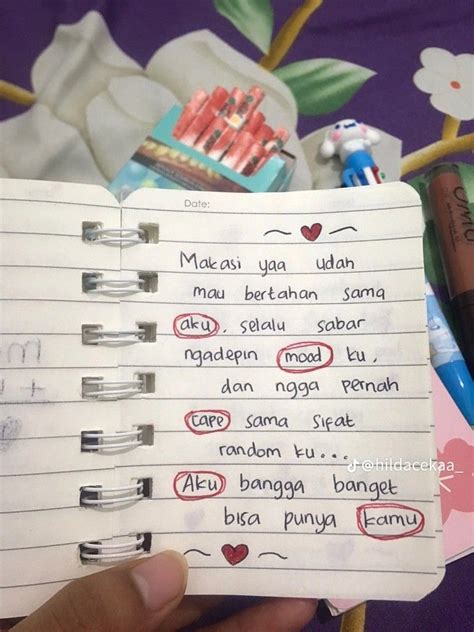 Date:
Makasi yaa udah
mau bertahan sama
aku, selalu sabar
ngadepin mood ku,
dan ngga pernah
cape sama sifat
random ku...
@hildacekaa_
Aku bangga banget
bisa punya kamu